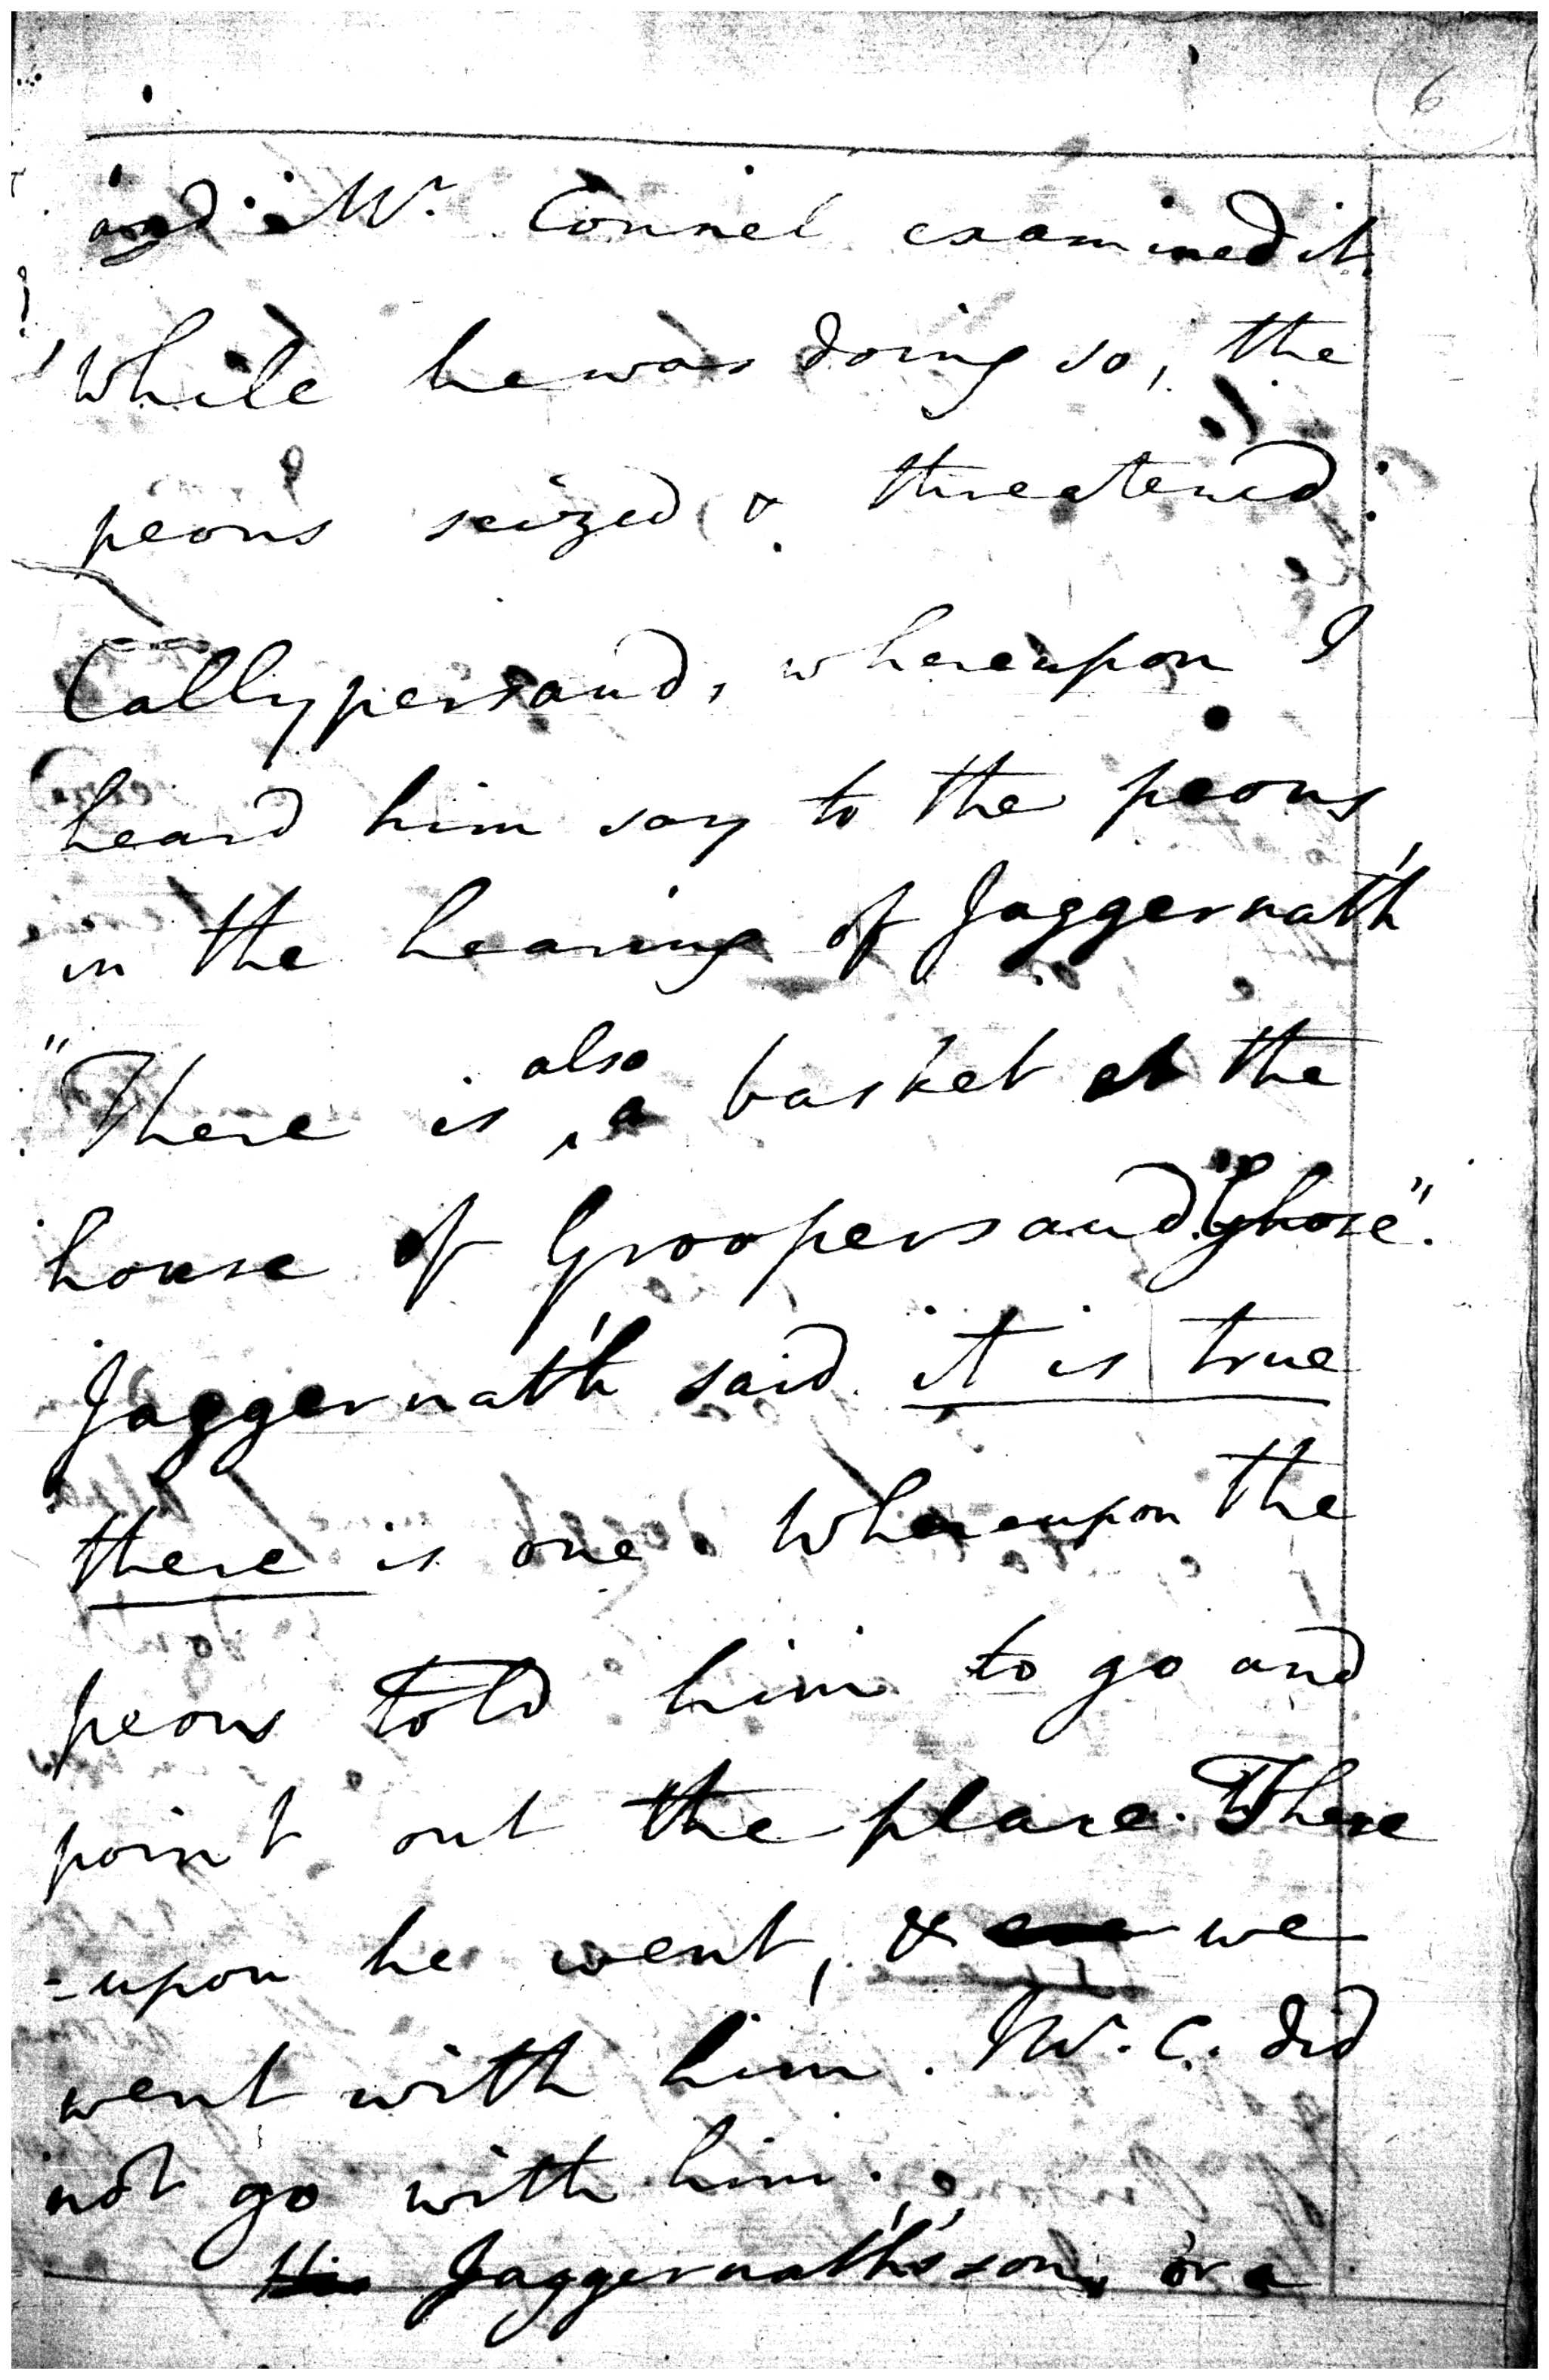 6
and Mr. Connel examined it.
While he was doing so, the
peons seized & threatened
Callypersaud, whereupon I
heard him say to the peons
in the hearing of Jaggernat'h
"There is also a basket at the
house of Groopersaud Ghose".
Jaggernat'h said it is true
there is one. Whereupon the
peons told him to go and
point out the place. There
-upon he went, & we
went with him. Mr. C. did
not go with him.
His Jaggernat'h's son, or a